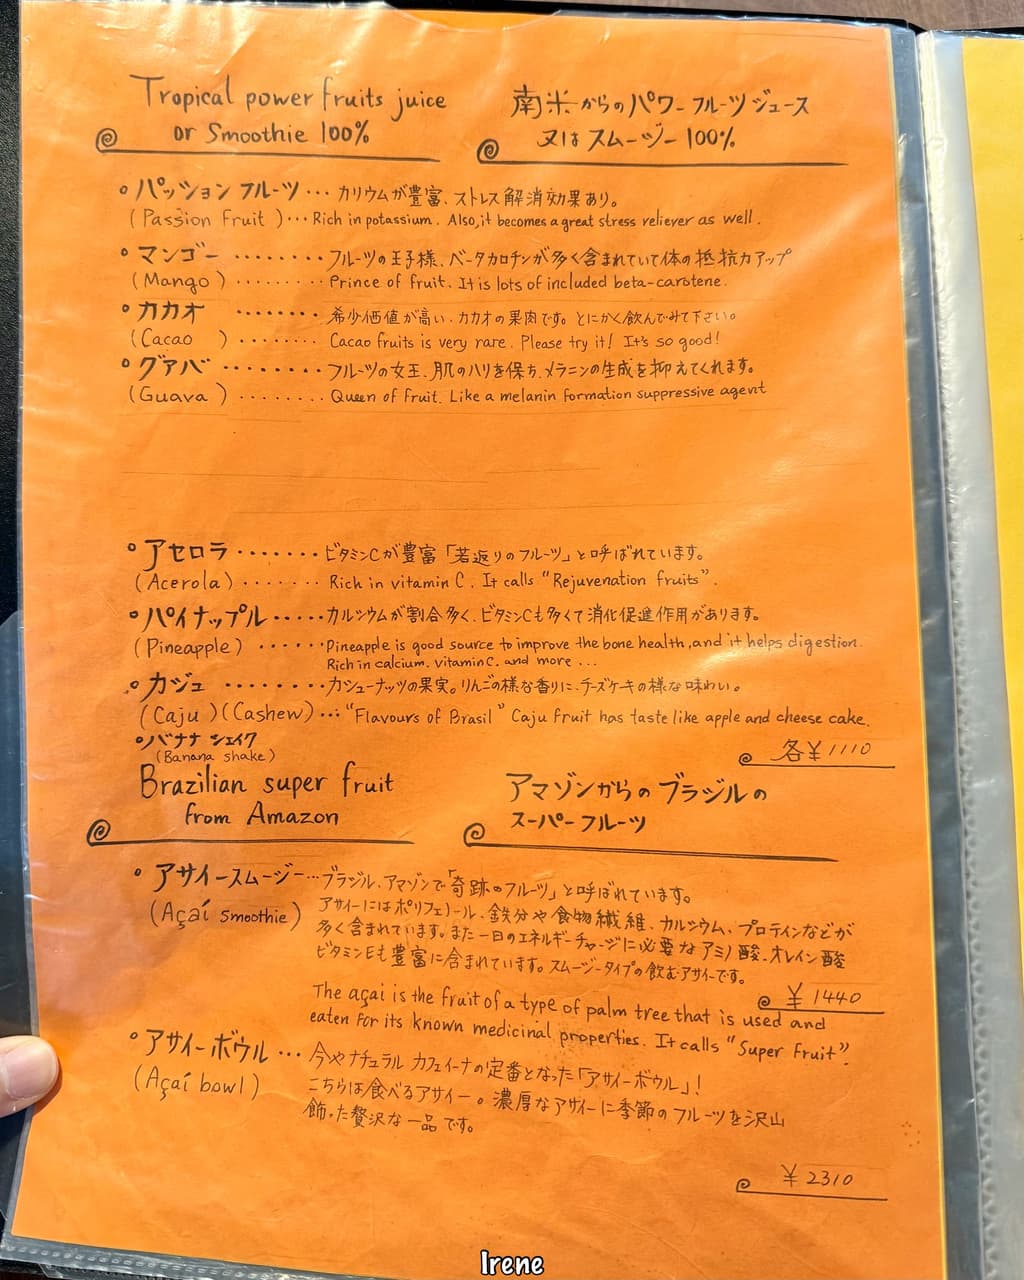 Tropical power fruits juice
or Smoothie 100%
南米からのパワーフルーツジュース
又はスムージー100%
パッションフルーツ・・・カリウムが豊富、ストレス解消効果あり。
(Passion Fruit)・・・Rich in potassium. Also, it becomes a great stress reliever as well.
マンゴー・・・・・・・・フルーツの王子様、ベータカロチンが多く含まれていて体の抵抗力アップ
(Mango)・・・・・・・・・Prince of fruit. It is lots of included beta-carotene.
カカオ・・・・・・・・希少価値が高い、カカオの果肉です。とにかく飲んでみて下さい。
(Cacao)・・・・・・・・Cacao fruits is very rare. Please try it! It's so good!
グァバ・・・・・・・・・フルーツの女王、肌のハリを保ち、メラニンの生成を抑えてくれます。
(Guava)・・・・・・・・Queen of fruit. Like a melanin formation suppressive agent
アセロラ・・・・・・・ビタミンCが豊富「若返りのフルーツ」と呼ばれています。
(Acerola)・・・・・・・Rich in vitamin C. It calls "Rejuvenation fruits".
パイナップル・・・・・カルシウムが割合多く、ビタミンCも多くて消化促進作用があります。
(Pineapple)・・・・・・Pineapple is good source to improve the bone health, and it helps digestion.
Rich in calcium. vitamin C. and more ...
カジュ・・・・・・・・カシューナッツの果実。りんごの様な香りに、チーズケーキの様な味わい。
(Caju)(Cashew)・・・"Flavours of Brasil" Caju fruit has taste like apple and cheese cake.
バナナシェイク
(Banana shake)
各¥1110
Brazilian super fruit
from Amazon
アマゾンからのブラジルの
スーパーフルーツ
アサイースムージー・・・ブラジル、アマゾンで「奇跡のフルーツ」と呼ばれています。
(Açaí smoothie)
アサイーにはポリフェノール、鉄分や食物繊維、カルシウム、プロテインなどが
多く含まれています。また一日のエネルギーチャージに必要なアミノ酸、オレイン酸
ビタミンEも豊富に含まれています。スムージータイプの飲むアサイーです。
¥1440
The açai is the fruit of a type of palm tree that is used and
eaten for its known medicinal properties. It calls "Super Fruit".
アサイーボウル・・・今やナチュラルカフェイーナの定番となった「アサイーボウル」!
(Açaí bowl)
こちらは食べるアサイー。濃厚なアサイーに季節のフルーツを沢山
飾った贅沢な一品です。
¥2310
Irene